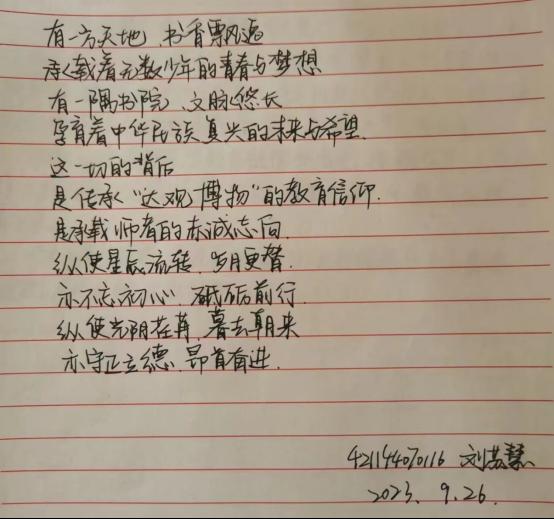 有一方天地,书香飘逸
承载着无数少年的青春与梦想
有一隅书院,文脉悠长
孕育着中华民族复兴的未来与希望.
这一切的背后
是传承“达观博物”的教育信仰.
是承载师者的赤诚志向
纵使星辰流转,岁月更替.
亦不忘初心,砥砺前行.
纵使光阴荏苒,暮去朝来
亦守正立德,昂首奋进.
42114070116 刘芸慧
2023. 9.26.